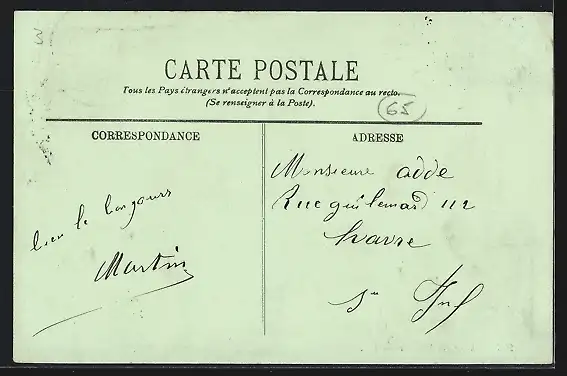 CARTE POSTALE
Tous les Pays étrangers n'acceptent pas la Correspondance au recto.
(Se renseigner à la Poste).
65
CORRESPONDANCE
bien le bonjours
Martin
ADRESSE
Monsieur adde
Rue guillemard 112
havre
Sne Inf